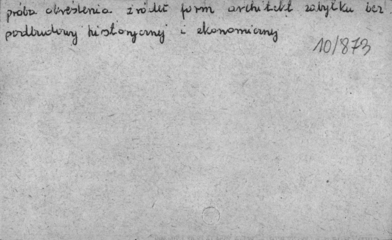 próba określenia źródeł form architekt zabytku bez
podbudowy historycznej i ekonomicznej
10/873